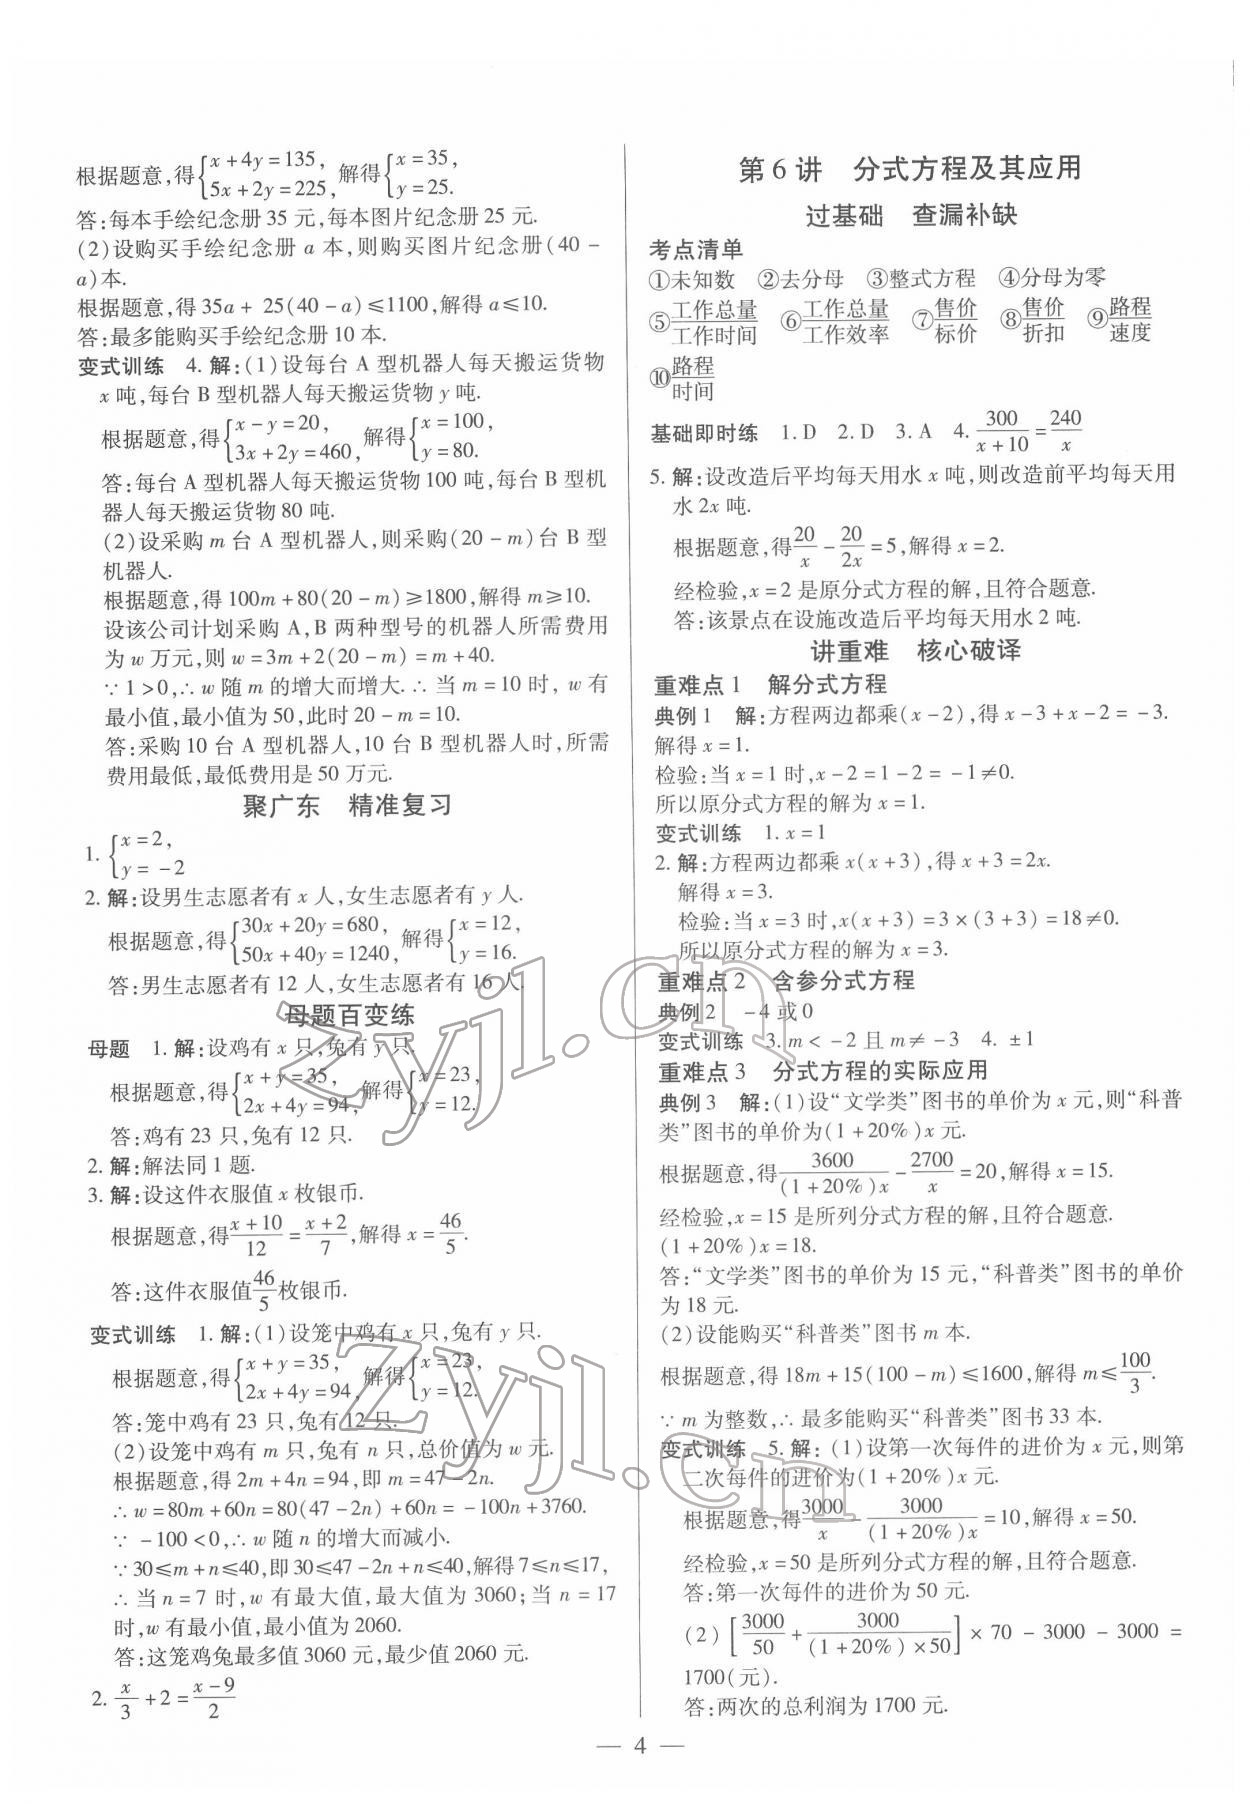 根据题意,得{x+4y=135, 5x+2y=225, 解得{x=35, y=25.
答:每本手绘纪念册 35 元,每本图片纪念册 25 元.
(2)设购买手绘纪念册 a 本,则购买图片纪念册(40-
a)本.
根据题意,得 35a+25(40-a)≤1100,解得 a≤10.
答:最多能购买手绘纪念册 10 本.
变式训练 4. 解:(1)设每台 A 型机器人每天搬运货物
x 吨,每台 B 型机器人每天搬运货物 y 吨.
根据题意,得{x-y=20, 3x+2y=460, 解得{x=100, y=80.
答:每台 A 型机器人每天搬运货物 100 吨,每台 B 型机
器人每天搬运货物 80 吨.
(2)设采购 m 台 A 型机器人,则采购(20-m)台 B 型
机器人.
根据题意,得 100m+80(20-m)≥1800,解得 m≥10.
设该公司计划采购 A,B 两种型号的机器人所需费用
为 w 万元,则 w=3m+2(20-m)=m+40.
∵1>0,∴w 随 m 的增大而增大.∴当 m=10 时, w 有
最小值,最小值为 50,此时 20-m=10.
答:采购 10 台 A 型机器人,10 台 B 型机器人时,所需
费用最低,最低费用是 50 万元.
聚广东 精准复习
1. {x=2, y=-2
2. 解:设男生志愿者有 x 人,女生志愿者有 y 人.
根据题意,得{30x+20y=680, 50x+40y=1240, 解得{x=12, y=16.
答:男生志愿者有 12 人,女生志愿者有 16 人.
母题百变练
母题 1. 解:设鸡有 x 只,兔有 y 只.
根据题意,得{x+y=35, 2x+4y=94, 解得{x=23, y=12.
答:鸡有 23 只,兔有 12 只.
2. 解:解法同 1 题.
3. 解:设这件衣服值 x 枚银币.
根据题意,得(x+10)/12=(x+2)/7,解得 x=46/5.
答:这件衣服值46/5枚银币.
变式训练 1. 解:(1)设笼中鸡有 x 只,兔有 y 只.
根据题意,得{x+y=35, 2x+4y=94, 解得{x=23, y=12.
答:笼中鸡有 23 只,兔有 12 只.
(2)设笼中鸡有 m 只,兔有 n 只,总价值为 w 元.
根据题意,得 2m+4n=94,即 m=47-2n.
∴w=80m+60n=80(47-2n)+60n=-100n+3760.
∵-100<0,∴w 随 n 的增大而减小.
∵30≤m+n≤40,即 30≤47-2n+n≤40,解得 7≤n≤17,
∴当 n=7 时,w 有最大值,最大值为 3060;当 n=17
时,w 有最小值,最小值为 2060.
答:这笼鸡兔最多值 3060 元,最少值 2060 元.
2. x/3+2=(x-9)/2
第 6 讲 分式方程及其应用
过基础 查漏补缺
考点清单
①未知数 ②去分母 ③整式方程 ④分母为零
⑤工作总量/工作时间 ⑥工作总量/工作效率 ⑦售价/标价 ⑧售价/折扣 ⑨路程/速度
⑩路程/时间
基础即时练 1. D 2. D 3. A 4. 300/(x+10)=240/x
5. 解:设改造后平均每天用水 x 吨,则改造前平均每天用
水 2x 吨.
根据题意,得20/x-20/2x=5,解得 x=2.
经检验,x=2 是原分式方程的解,且符合题意.
答:该景点在设施改造后平均每天用水 2 吨.
讲重难 核心破译
重难点 1 解分式方程
典例 1 解:方程两边都乘(x-2),得 x-3+x-2=-3.
解得 x=1.
检验:当 x=1 时,x-2=1-2=-1≠0.
所以原分式方程的解为 x=1.
变式训练 1. x=1
2. 解:方程两边都乘 x(x+3),得 x+3=2x.
解得 x=3.
检验:当 x=3 时,x(x+3)=3×(3+3)=18≠0.
所以原分式方程的解为 x=3.
重难点 2 含参分式方程
典例 2 -4 或 0
变式训练 3. m<-2 且 m≠-3 4. ±1
重难点 3 分式方程的实际应用
典例 3 解:(1)设“文学类”图书的单价为 x 元,则“科普
类”图书的单价为(1+20%)x 元.
根据题意,得3600/(1+20%)x-2700/x=20,解得 x=15.
经检验,x=15 是所列分式方程的解,且符合题意.
(1+20%)x=18.
答:“文学类”图书的单价为 15 元,“科普类”图书的单价
为 18 元.
(2)设能购买“科普类”图书 m 本.
根据题意,得 18m+15(100-m)≤1600,解得 m≤100/3.
∵m 为整数,∴最多能购买“科普类”图书 33 本.
变式训练 5. 解:(1)设第一次每件的进价为 x 元,则第
二次每件的进价为(1+20%)x 元.
根据题意,得3000/x-3000/(1+20%)x=10,解得 x=50.
经检验,x=50 是所列分式方程的解,且符合题意.
答:第一次每件的进价为 50 元.
(2)[3000/50+3000/(1+20%)×50]×70-3000-3000=
1700(元).
答:两次的总利润为 1700 元.
— 4 —
zyjl.cn
zyjl.cn